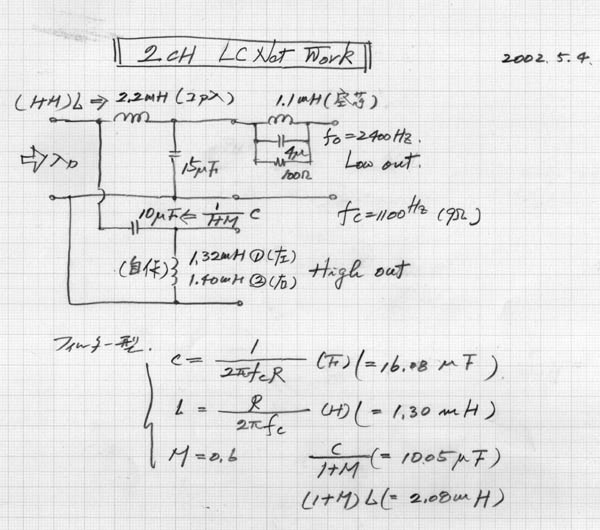 2CH LC Net Work
2002.5.4.
(1+M)L ⇒ 2.2mH(コア入) 1.1mH(空芯)
入力
15μF
4μ
100Ω
fo=2400Hz.
Low out.
10μF ⇐ 1/1+M C
fc=1100Hz (9Ω)
(自作)
1.32mH ①(左)
1.40mH ②(右)
High out
フィルター型.
C = 1/2πfcR (F) (=16.08 μF)
L = R/2πfc (H) (= 1.30 mH)
M=0.6 C/1+M (= 10.05 μF)
(1+M)L (= 2.08mH)